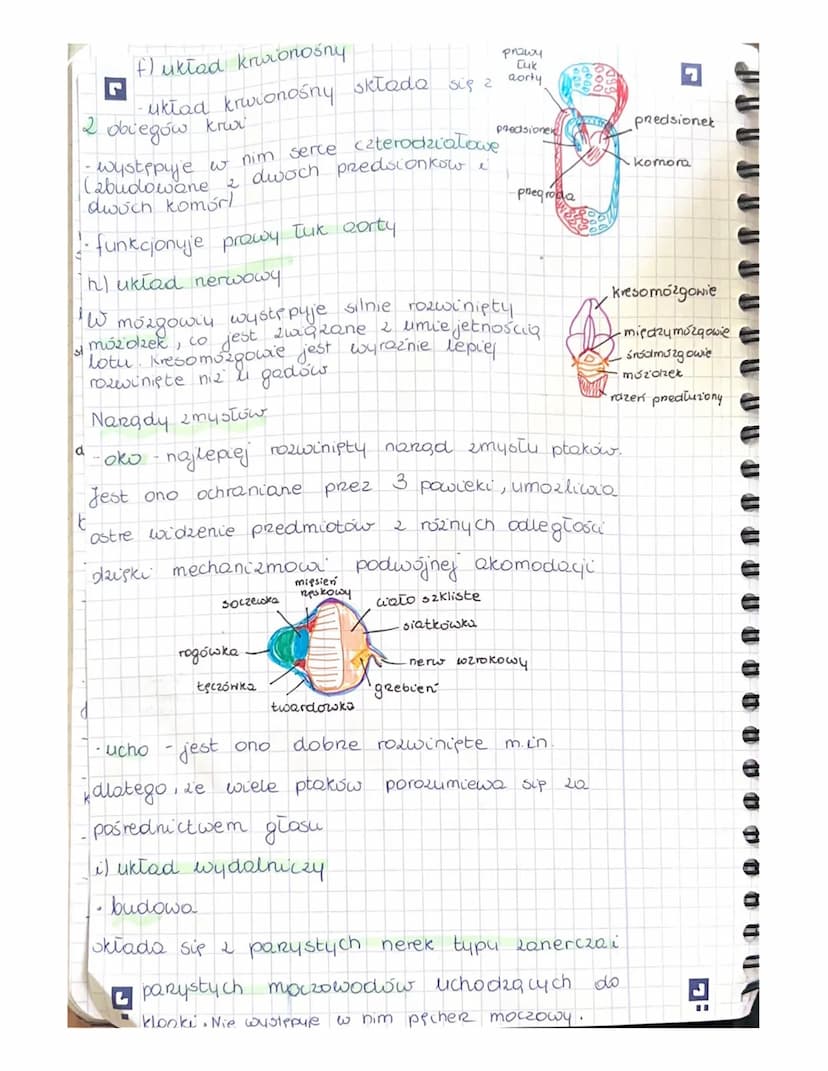 f) układ krwionośny
- układ krwionośny składa się z
2 obiegów krwi
- występuje w nim serce czterodziałowe
(zbudowane z dwóch przedsionków i
dwóch komór)
- funkcjonuje prawy łuk aorty
prawy
łuk
aorty
przedsionek
przedsionek
komora
przegroda
h) układ nerwowy
W mózgowiu występuje silnie rozwinięty
móżdżek, co jest związane z umiejętnością
lotu. Kresomózgowie jest wyraźnie lepiej
rozwinięte niż u gadów
kresomózgowie
międzymózgowie
śródmózgowie
móżdżek
rdzeń przedłużony
Narządy zmysłów
- oko - najlepiej rozwinięty narząd zmysłu ptaków.
Jest ono ochraniane przez 3 powieki, umożliwia
ostre widzenie przedmiotów z różnych odległości
dzięki mechanizmowi podwójnej akomodacji
mięsień
rzęskowy
soczewka
ciało szkliste
siatkówka
rogówka
nerw wzrokowy
tęczówka
grzebień
twardówka
- ucho - jest ono dobrze rozwinięte m.in.
dlatego, że wiele ptaków porozumiewa się za
pośrednictwem głosu
i) układ wydalniczy
• budowa
składa się z parzystych nerek typu zanercza i
parzystych moczowodów uchodzących do
kloaki. Nie występuje w nim pęcherz moczowy.